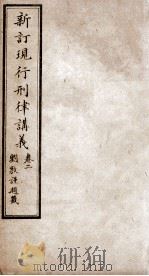 新訂現行刑律講義
卷二
劉敦謹題簽